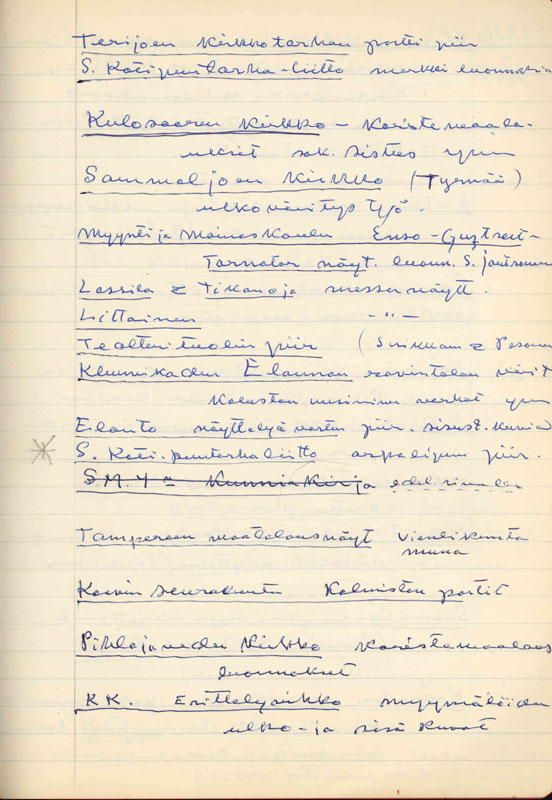 Terijoen Kirkkotarhan portti piir
S. Kotipuutarha-liitto merkki luonnoksia
Kulosaaren Kirkko - Koristemaala-
ukset sak. sisties ym
Sammaljoen Kirkko (Tyrvää)
ulkoväritys työ.
Myynti ja Mainoskoulu Enso-Gutzeit-
Tornator näyt. luonn. S. Jantunen
Lassila & Tikanoja messunäytt.
Littoinen - " -
Teatterituolin piir ( Suikkari & Pesonen
Elannon ravintolan värit
Kaluston uusiminen verhot ym
Elanto näyttelyä varten piir. sisust. kuvia
S. Koti-puutarhaliitto arpalipun piir.
S.M.Y = Kunniakirja
Tampereen maatalousnäyt Vientikunta
muna
seurakunta Kalmiston portit
Pihlajaveden Kirkko Koristemaalaus
luonnokset
KK. Erittelyvihko myymälöiden
ulko- ja sisä kuvat